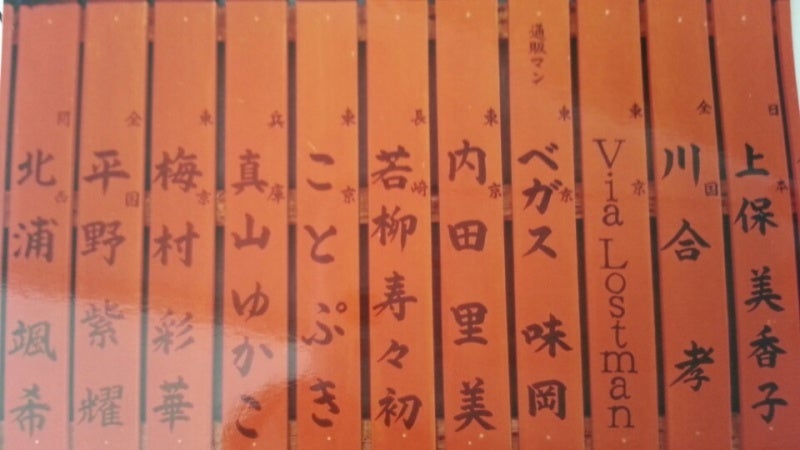 日本 上保 美香子
全国 川合 孝
東京 Via Lostman
通販マン 東京 ベガス 味岡
東京 内田里美
長崎 若柳寿々初
東京 ことぷき
兵庫 真山ゆかこ
東京 梅村 彩華
全国 平野 紫耀
関西 北浦 颯希